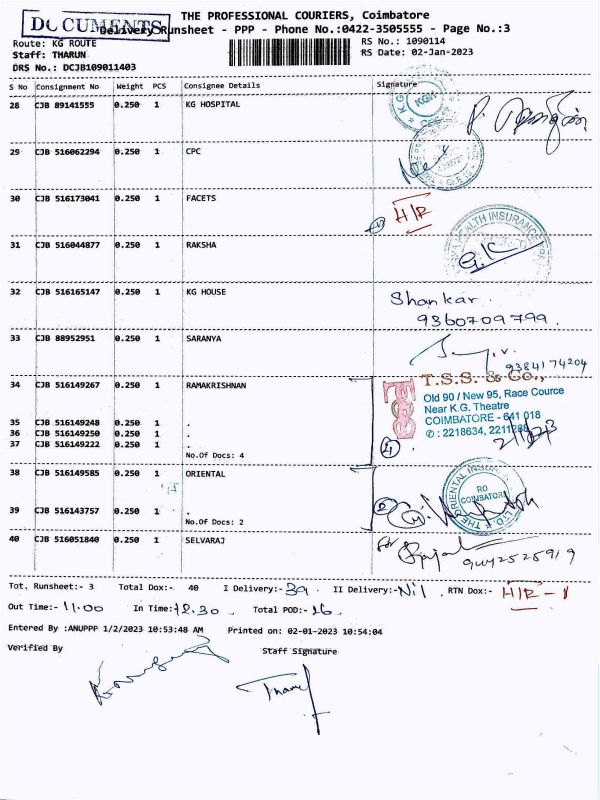 DOCUMENTS
THE PROFESSIONAL COURIERS, Coimbatore
Delivery Runsheet - PPP - Phone No.:0422-3505555 - Page No.:3
Route: KG ROUTE
RS No.: 1090114
Staff: THARUN
RS Date: 02-Jan-2023
DRS No.: DCJB109011403
S No Consignment No Weight PCS Consignee Details Signature
28 CJB 89141555 0.250 1 KG HOSPITAL
29 CJB 516062294 0.250 1 CPC
30 CJB 516173041 0.250 1 FACETS H/R
31 CJB 516044877 0.250 1 RAKSHA
32 CJB 516165147 0.250 1 KG HOUSE Shankar.
9360709799.
33 CJB 88952951 0.250 1 SARANYA
9384174204
34 CJB 516149267 0.250 1 RAMAKRISHNAN
TSS
T.S.S. & Co.,
Old 90 / New 95, Race Cource
Near K.G. Theatre
COIMBATORE - 641 018
35 CJB 516149248 0.250 1 .
36 CJB 516149250 0.250 1 .
37 CJB 516149222 0.250 1 .
No.Of Docs: 4
38 CJB 516149585 0.250 1 ORIENTAL
RO
COIMBATORE
39 CJB 516143757 0.250 1 .
No.Of Docs: 2
40 CJB 516051840 0.250 1 SELVARAJ
for
Tot. Runsheet:- 3 Total Dox:- 40 I Delivery:- 39. II Delivery:- Nil. RTN Dox:- H/R - 1
Out Time:- 11.00 In Time:- 12.30. Total POD:- 16.
Entered By :ANUPPP 1/2/2023 10:53:48 AM Printed on: 02-01-2023 10:54:04
Verified By Staff Signature